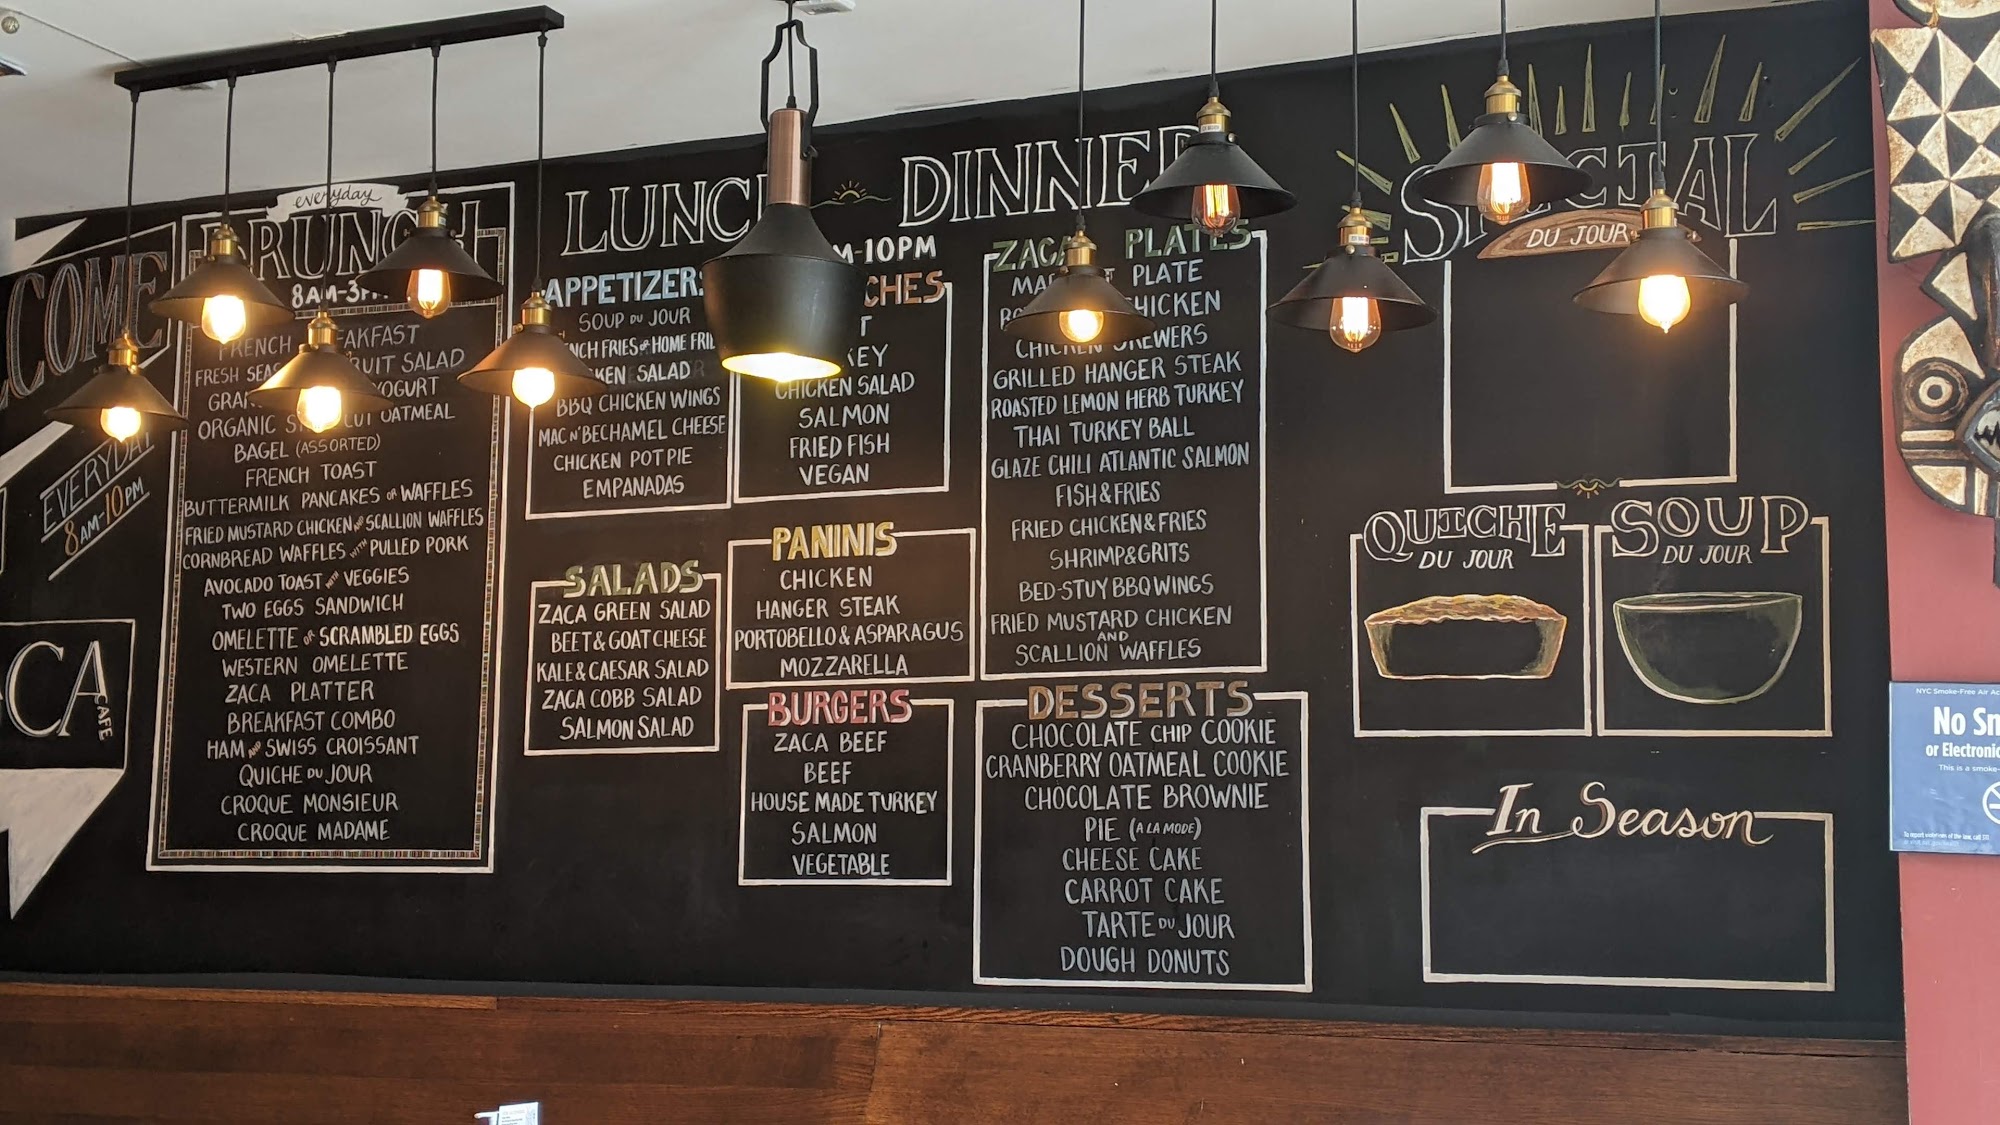 COME
EVERYDAY
8AM-10PM
CA
CAFE
everyday
BRUNCH
8AM-3PM
FRENCH
FRESH FRUIT SALAD
YOGURT
ORGANIC OATMEAL
BAGEL (ASSORTED)
FRENCH TOAST
BUTTERMILK PANCAKES or WAFFLES
FRIED MUSTARD CHICKEN AND SCALLION WAFFLES
CORNBREAD WAFFLES WITH PULLED PORK
AVOCADO TOAST WITH VEGGIES
TWO EGGS SANDWICH
OMELETTE or SCRAMBLED EGGS
WESTERN OMELETTE
ZACA PLATTER
BREAKFAST COMBO
HAM AND SWISS CROISSANT
QUICHE DU JOUR
CROQUE MONSIEUR
CROQUE MADAME
LUNCH DINNER
M-10PM
APPETIZERS
SOUP DU JOUR
FRENCH FRIES or HOME FRIES
SALAD
BBQ CHICKEN WINGS
MAC N' BECHAMEL CHEESE
CHICKEN POT PIE
EMPANADAS
SALADS
ZACA GREEN SALAD
BEET & GOAT CHEESE
KALE & CAESAR SALAD
ZACA COBB SALAD
SALMON SALAD
CHES
CHICKEN SALAD
SALMON
FRIED FISH
VEGAN
PANINIS
CHICKEN
HANGER STEAK
PORTOBELLO & ASPARAGUS
MOZZARELLA
BURGERS
ZACA BEEF
BEEF
HOUSE MADE TURKEY
SALMON
VEGETABLE
ZACA PLATES
PLATE
CHICKEN
CHICKEN SKEWERS
GRILLED HANGER STEAK
ROASTED LEMON HERB TURKEY
THAI TURKEY BALL
GLAZE CHILI ATLANTIC SALMON
FISH & FRIES
FRIED CHICKEN & FRIES
SHRIMP & GRITS
BED-STUY BBQ WINGS
FRIED MUSTARD CHICKEN
AND
SCALLION WAFFLES
DESSERTS
CHOCOLATE CHIP COOKIE
CRANBERRY OATMEAL COOKIE
CHOCOLATE BROWNIE
PIE (A LA MODE)
CHEESE CAKE
CARROT CAKE
TARTE DU JOUR
DOUGH DONUTS
SPECIAL
DU JOUR
QUICHE
DU JOUR
SOUP
DU JOUR
In Season
NYC Smoke-Free Air Ac
No Sm
or Electronic
This is a smoke-